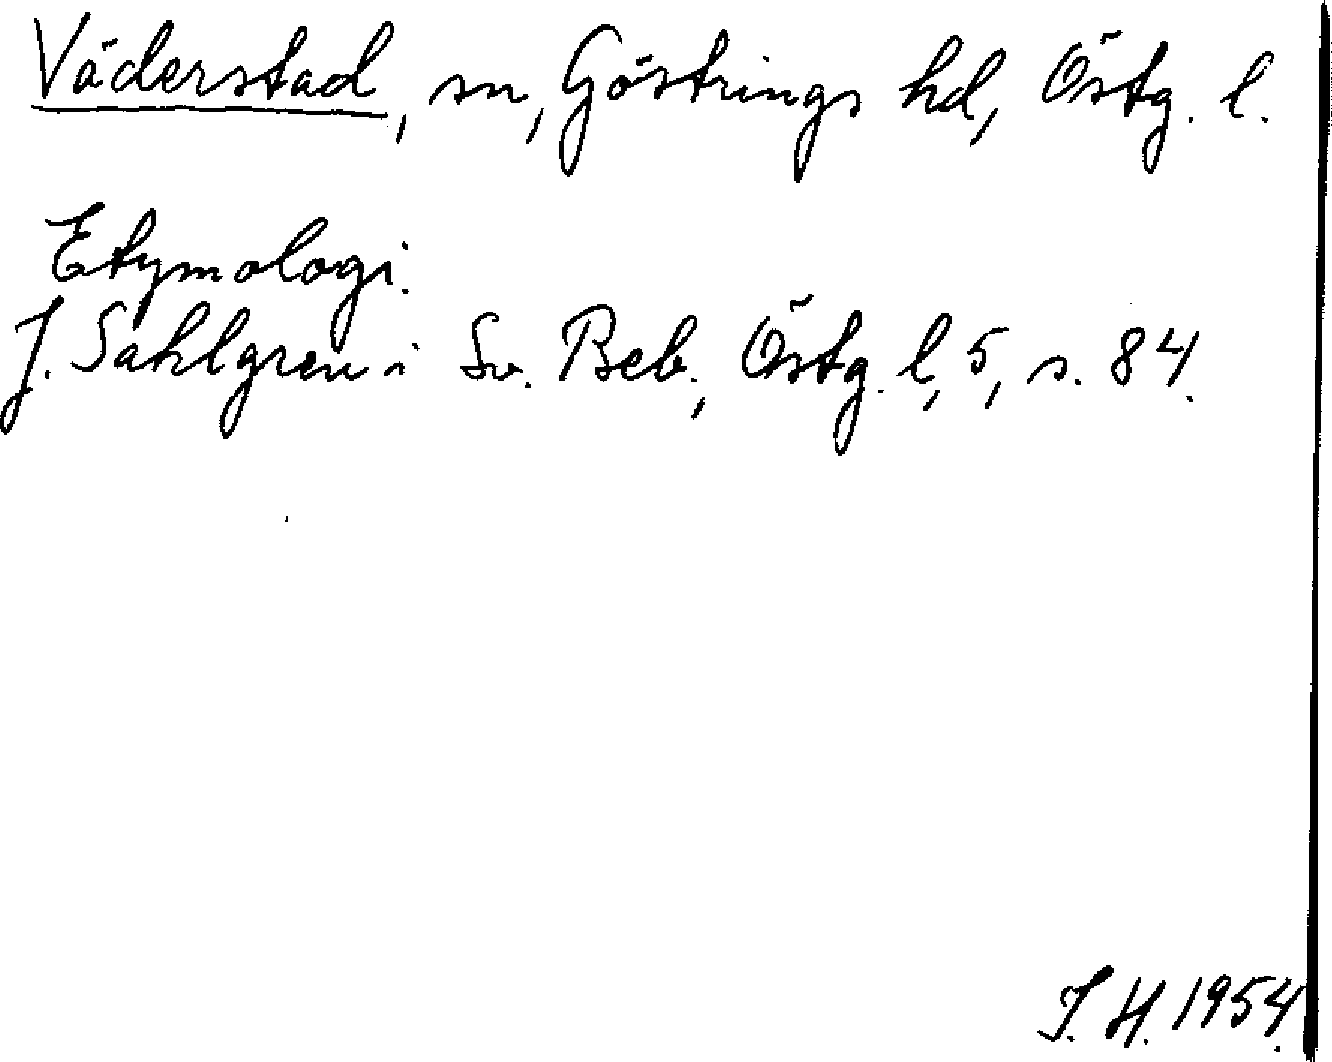 Väderstad, sn, Göstrings hd, Östg. l.
Etymologi.
J. Sahlgren i Sv. Beb., Östg. l, 5, s. 84.
I. H. 1954.